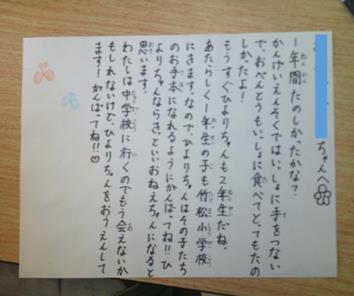 ちゃんへ
1年間、たのしかったかな？
かんげいえんそくではいっしょに手をつない
で、おべんとうもいっしょに食べてとってもたの
しかったよ！
もうすぐひよりちゃんも2年生だね。
あたらしく1年生の子も竹松小学校
にきます。なので、ひよりちゃんはその子たち
のお手本になれるようにがんばってね!!ひ
よりちゃんならきっといいおねえちゃんになると
思います。
わたしは中学校に行くのでもう会えないか
もしれないけど、ひよりちゃんをおうえんして
ます！がんばってね!!♡